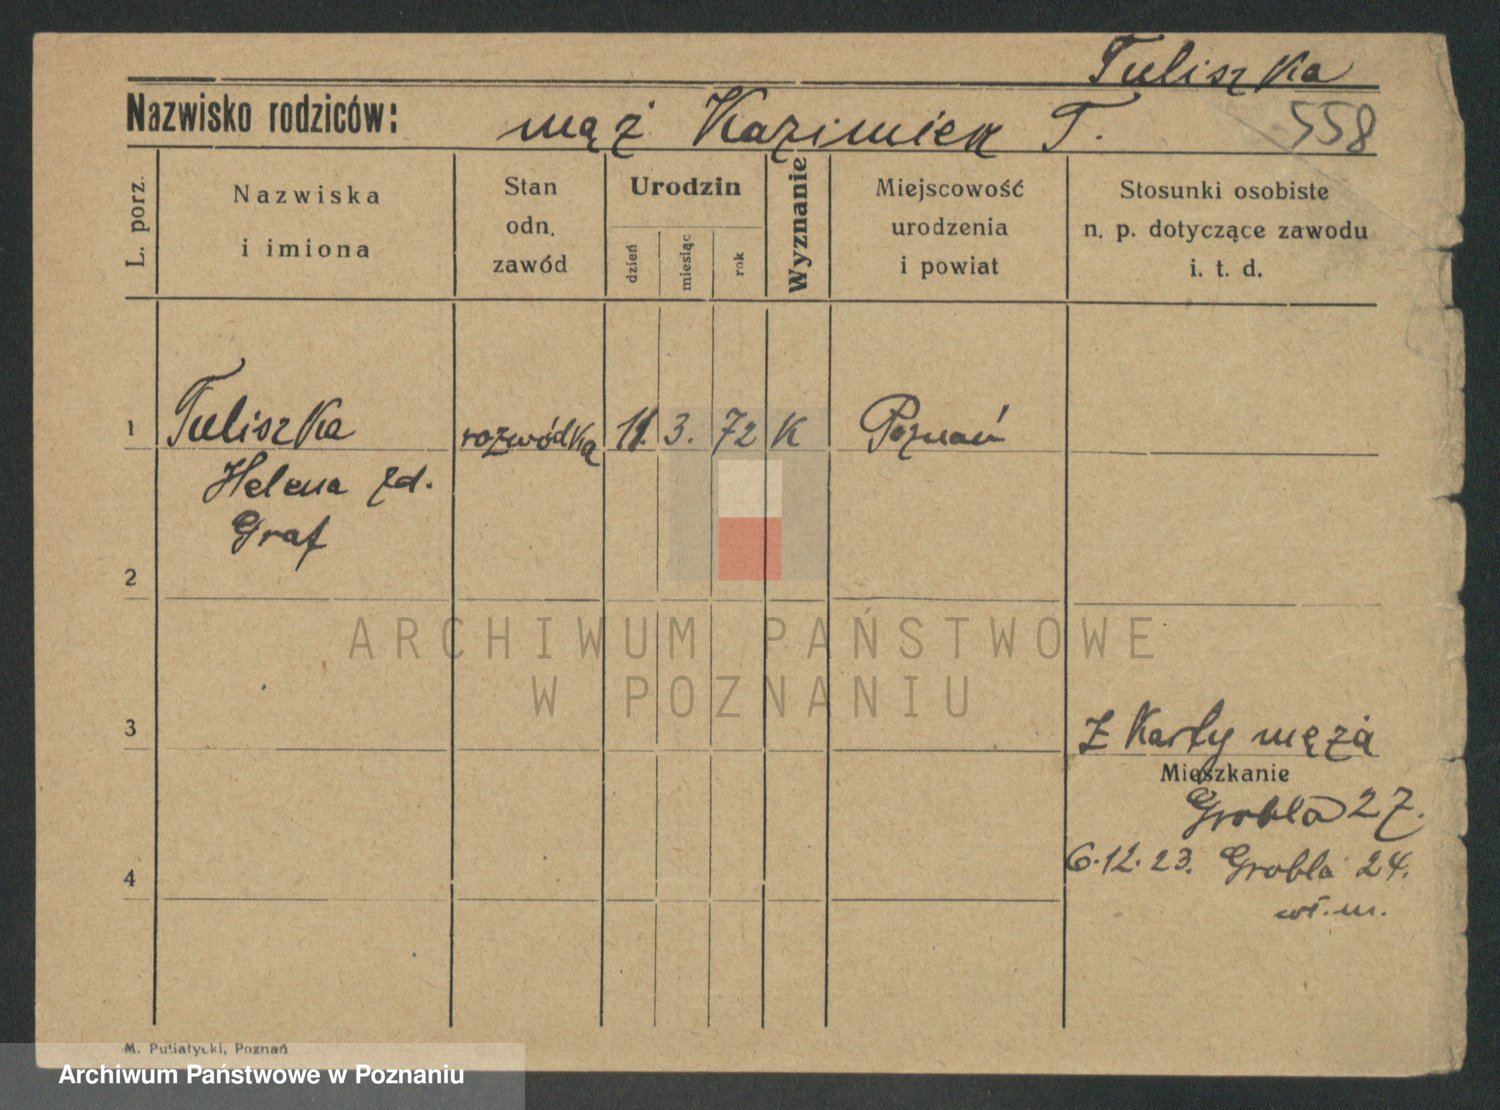 Tuliszka
Nazwisko rodziców: mąż Kazimierz T. 558
L. porz.
Nazwiska
i imiona
Stan
odn.
zawód
Urodzin
dzień
miesiąc
rok
Wyznanie
Miejscowość
urodzenia
i powiat
Stosunki osobiste
n. p. dotyczące zawodu
i. t. d.
1 Tuliszka rozwódka 11. 3. 72 K Poznań
Helena zd.
Graf
2
ARCHIWUM PAŃSTWOWE
W POZNANIU
3 Z Karty męża
Mieszkanie
Grobla 27.
6.12.23. Grobla 24.
4
wł. m.
M. Putiatycki, Poznań
Archiwum Państwowe w Poznaniu